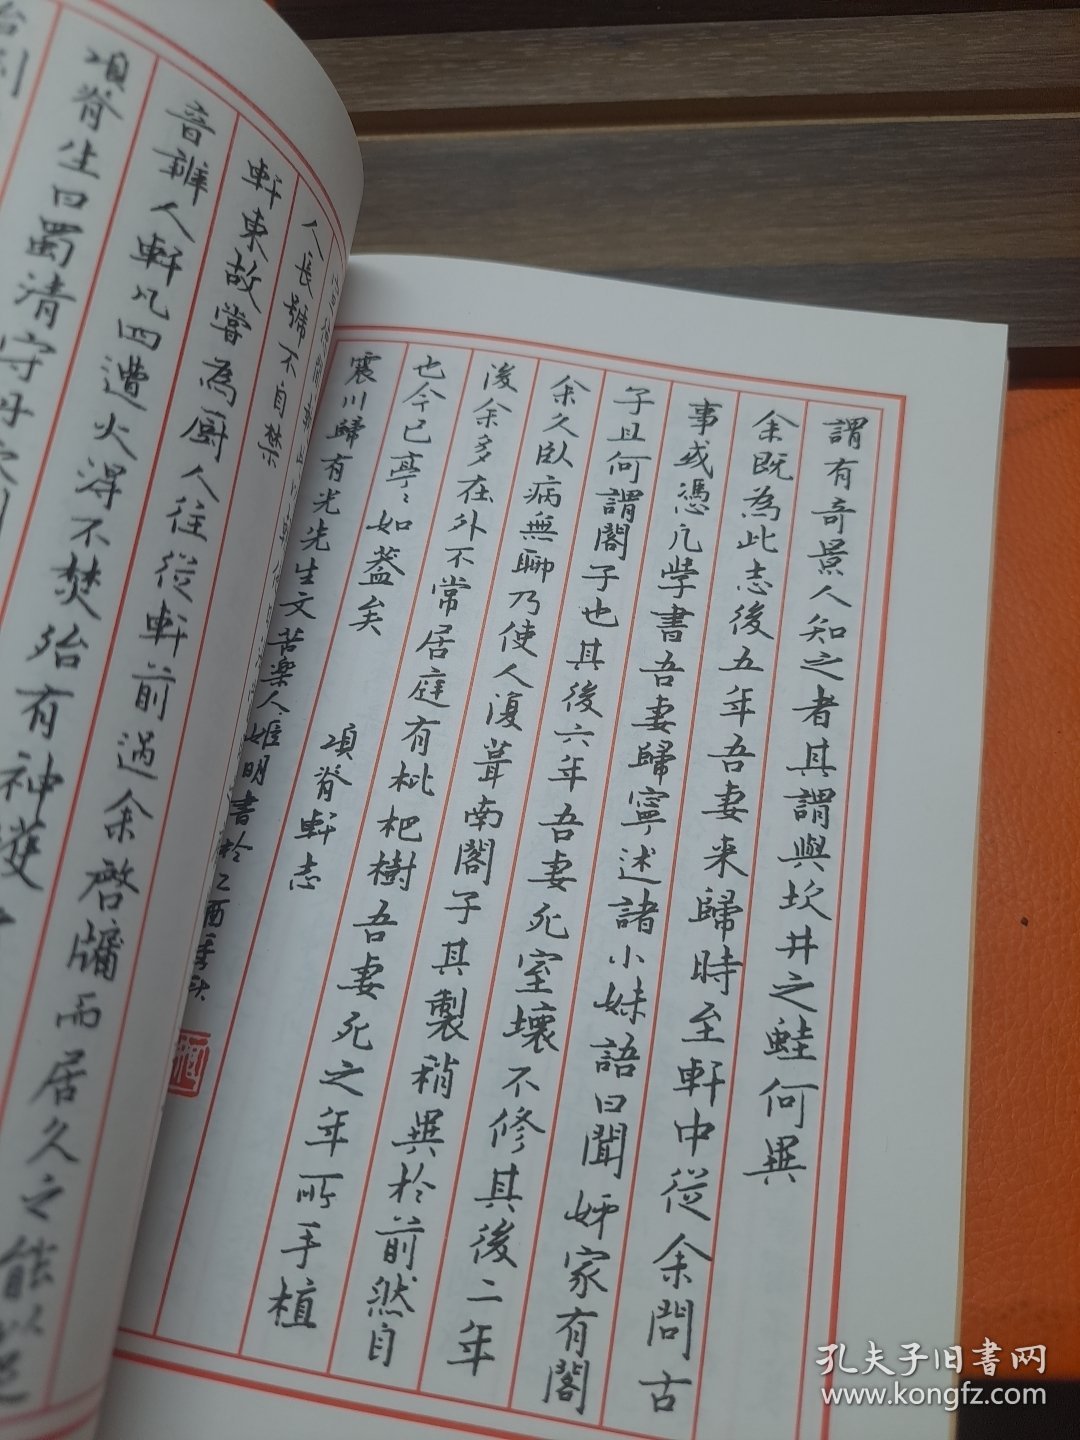 謂有奇景人知之者其謂與坎井之蛙何異
余既為此志後五年吾妻来歸時至軒中從余問古
事或憑几學書吾妻歸寧述諸小妹語曰聞姊家有閣
子且何謂閣子也其後六年吾妻死室壞不修其後二年
余久臥病無聊乃使人復葺南閣子其製稍異於前然自
後余多在外不常居庭有枇杷樹吾妻死之年所手植
也今已亭〻如蓋矣 項脊軒志
震川歸有光先生文苦樂人姬明書於乙酉季秋
人長號不自禁
軒東故嘗為廚人往從軒前過余啓牖而居久之能以足
音辨人軒凡四遭火得不焚殆有神護
項脊生曰蜀清守丹穴利
孔夫子旧書网
www.kongfz.com